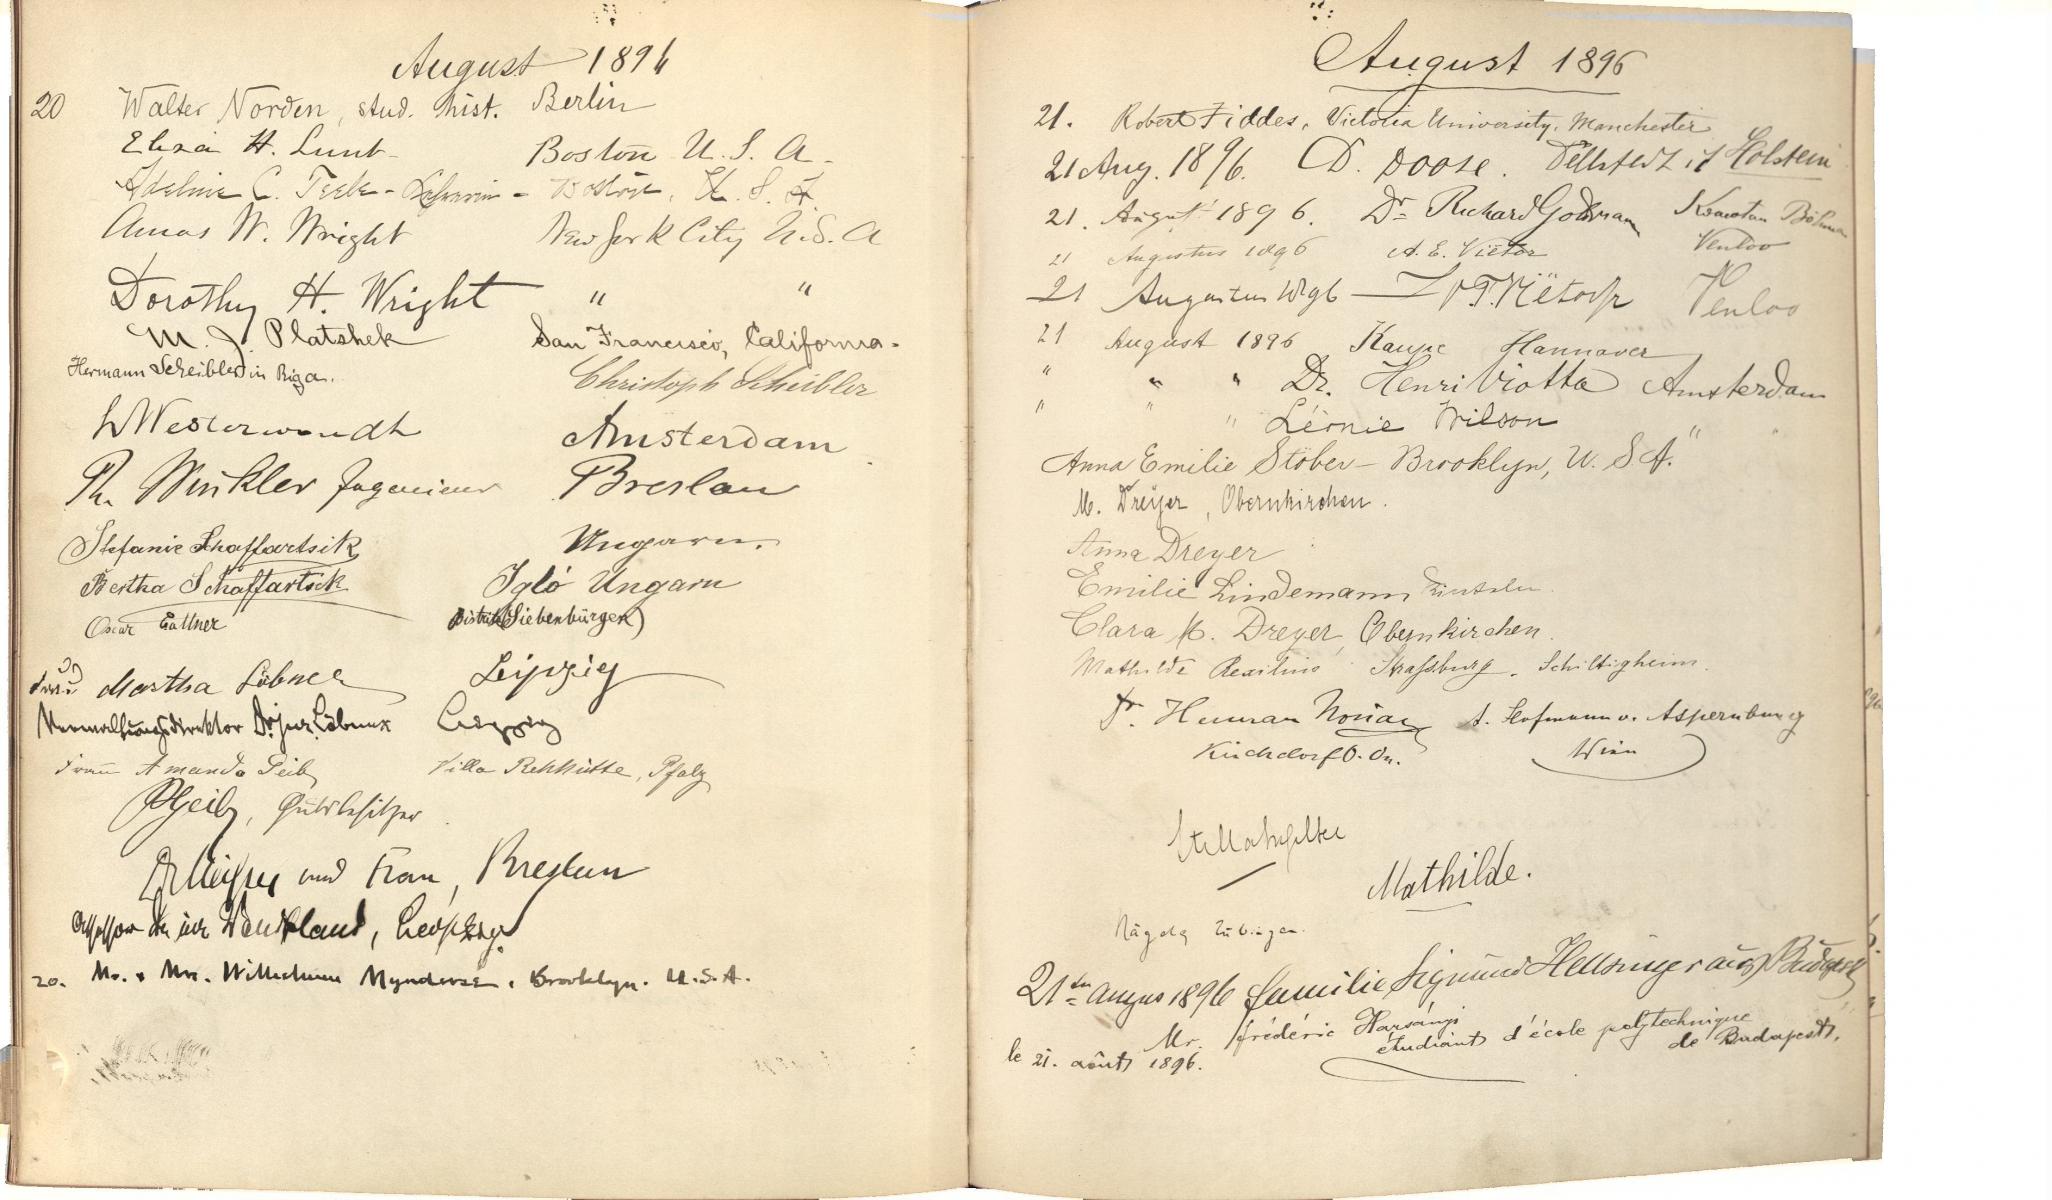 August 1896
20 Walter Norden, stud. hist. Berlin
Eliza H. Lunt Boston U. S. A.
Adeline C. Boston, U. S. A.
Amos W. Wright New York City U.S.A
Dorothy H. Wright " "
M. J. Platshek San Francisco, California.
Hermann Scheibler in Riga. Christoph Scheibler
Westerwoudt Amsterdam
Winkler Ingenieur Breslau
Stefanie Schaffartsik Ungarn.
Bertha Schaffartsik Igló Ungarn
Oscar Gallner (Siebenbürgen)
Frau Martha Löbner Leipzig
Verwaltungsdirektor Dr. jur. Löbner Leipzig
Frau Amanda Geib Villa Rehhütte, Pfalz
Geib, Gutsbesitzer
und Frau, Breslau
Assessor Dr. jur. Wendtland, Leipzig.
20. Mr. & Mrs. Wilhelmus Mynderse. Brooklyn. U.S.A.
August 1896
21. Robert Fiddes, Victoria University, Manchester
21 Aug. 1896. D. Doose. Holstein
21. August 1896. Dr. Richard Komotau Böhmen
21 Augustus 1896 A. E. Viëtor Venloo
21 Augustus 1896 Venloo
21 August 1896 Kaupe Hannover
" " " Dr. Henri Viotta Amsterdam
" " " Wilson " "
Anna Emilie Stöber – Brooklyn, U. S. A.
M. Dreyer, Obernkirchen.
Anna Dreyer
Emilie Lindemann Rinteln
Clara M. Dreyer, Obernkirchen.
Mathilde Strassburg. Schiltigheim.
Dr. A. Hofmann v. Aspernburg
Kirchdorf O. Oe. Wien
Mathilde.
21ten 1896 familie Sigmund Hellsinger aus Budapest
Mr. frédéric Harsányi
étudiant d'école polytechnique
le 21. août 1896. de Budapest.